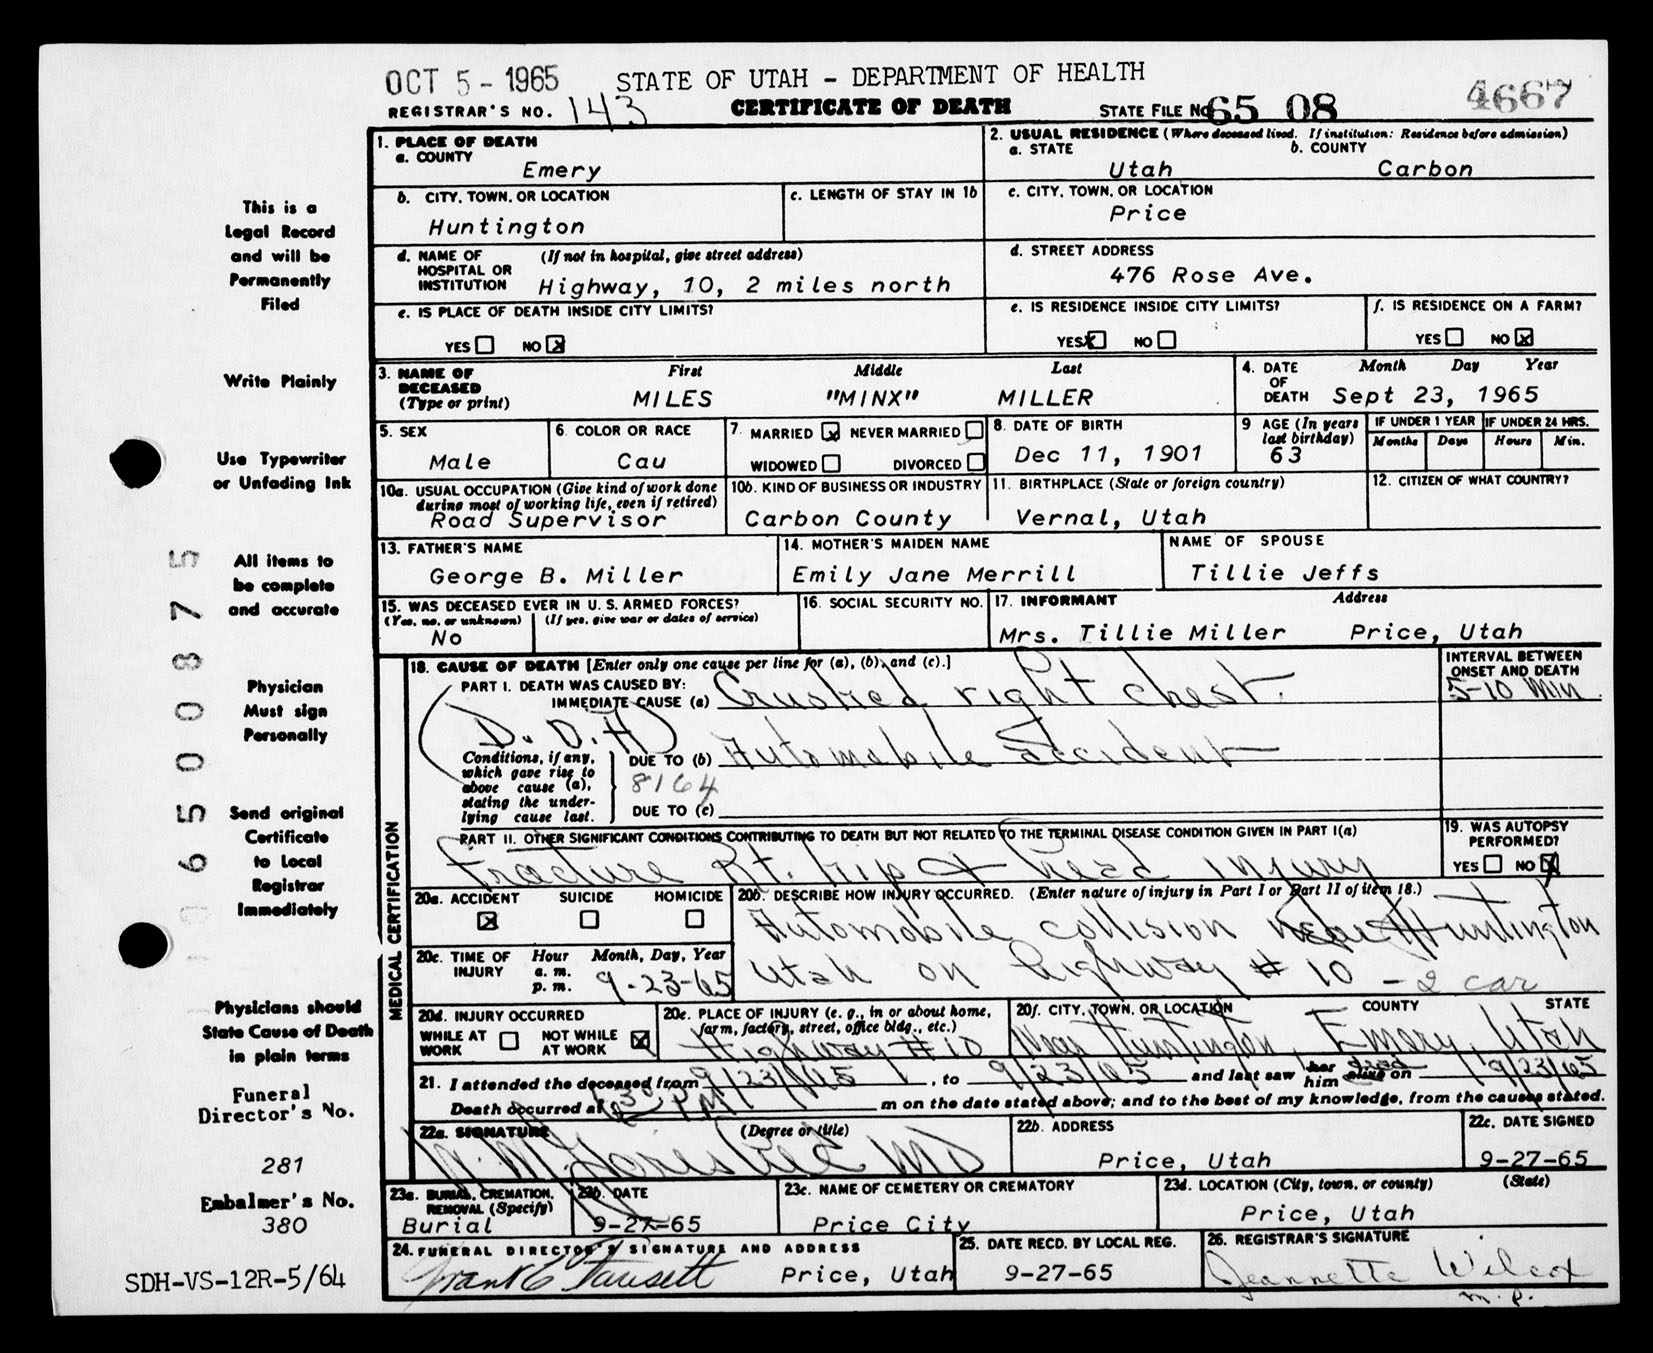 OCT 5 - 1965 STATE OF UTAH - DEPARTMENT OF HEALTH 4667
REGISTRAR'S NO. 143 CERTIFICATE OF DEATH STATE FILE NO. 65 08
This is a
Legal Record
and will be
Permanently
Filed
Write Plainly
Use Typewriter
or Unfading Ink
All items to
be complete
and accurate
Physician
Must sign
Personally
Send original
Certificate
to Local
Registrar
Immediately
Physicians should
State Cause of Death
in plain terms
Funeral
Director's No.
281
Embalmer's No.
380
SDH-VS-12R-5/64
0 6 5 0 0 8 7 5
1. PLACE OF DEATH
a. COUNTY
Emery
2. USUAL RESIDENCE (Where deceased lived. If institution: Residence before admission)
a. STATE b. COUNTY
Utah Carbon
b. CITY, TOWN, OR LOCATION
Huntington
c. LENGTH OF STAY IN 1b
c. CITY, TOWN, OR LOCATION
Price
d. NAME OF HOSPITAL OR INSTITUTION (If not in hospital, give street address)
Highway, 10, 2 miles north
d. STREET ADDRESS
476 Rose Ave.
e. IS PLACE OF DEATH INSIDE CITY LIMITS?
YES NO x
e. IS RESIDENCE INSIDE CITY LIMITS?
YES x NO
f. IS RESIDENCE ON A FARM?
YES NO x
3. NAME OF DECEASED (Type or print)
First Middle Last
MILES "MINX" MILLER
4. DATE OF DEATH
Month Day Year
Sept 23, 1965
5. SEX
Male
6. COLOR OR RACE
Cau
7. MARRIED x NEVER MARRIED
WIDOWED DIVORCED
8. DATE OF BIRTH
Dec 11, 1901
9 AGE (In years last birthday)
63
IF UNDER 1 YEAR
Months Days
IF UNDER 24 HRS.
Hours Min.
10a. USUAL OCCUPATION (Give kind of work done during most of working life, even if retired)
Road Supervisor
10b. KIND OF BUSINESS OR INDUSTRY
Carbon County
11. BIRTHPLACE (State or foreign country)
Vernal, Utah
12. CITIZEN OF WHAT COUNTRY?
13. FATHER'S NAME
George B. Miller
14. MOTHER'S MAIDEN NAME
Emily Jane Merrill
NAME OF SPOUSE
Tillie Jeffs
15. WAS DECEASED EVER IN U. S. ARMED FORCES?
(Yes, no, or unknown) (If yes, give war or dates of service)
No
16. SOCIAL SECURITY NO.
17. INFORMANT Address
Mrs. Tillie Miller Price, Utah
MEDICAL CERTIFICATION
18. CAUSE OF DEATH [Enter only one cause per line for (a), (b), and (c).]
INTERVAL BETWEEN ONSET AND DEATH
PART I. DEATH WAS CAUSED BY:
IMMEDIATE CAUSE (a) Crushed right chest. 5-10 Min.
(D.O.A)
Conditions, if any, which gave rise to above cause (a), stating the underlying cause last.
DUE TO (b) Automobile accident
8164
DUE TO (c)
PART II. OTHER SIGNIFICANT CONDITIONS CONTRIBUTING TO DEATH BUT NOT RELATED TO THE TERMINAL DISEASE CONDITION GIVEN IN PART I(a)
Fracture Rt. hip & head injury
19. WAS AUTOPSY PERFORMED?
YES NO x
20a. ACCIDENT SUICIDE HOMICIDE
x
20b. DESCRIBE HOW INJURY OCCURRED. (Enter nature of injury in Part I or Part II of item 18.)
Automobile collision near Huntington
Utah on highway # 10 - 2 car
20c. TIME OF INJURY Hour a. m. p. m. Month, Day, Year
9-23-65
20d. INJURY OCCURRED
WHILE AT WORK NOT WHILE AT WORK x
20e. PLACE OF INJURY (e. g., in or about home, farm, factory, street, office bldg., etc.)
Highway # 10
20f. CITY, TOWN, OR LOCATION COUNTY STATE
Near Huntington, Emery, Utah
21. I attended the deceased from 9/23/65, to 9/23/65 and last saw her him alive dead on 9/23/65
Death occurred at PM m on the date stated above; and to the best of my knowledge, from the causes stated.
22a. SIGNATURE (Degree or title)
MD
22b. ADDRESS
Price, Utah
22c. DATE SIGNED
9-27-65
23a. BURIAL, CREMATION, REMOVAL (Specify)
Burial
23b. DATE
9-27-65
23c. NAME OF CEMETERY OR CREMATORY
Price City
23d. LOCATION (City, town, or county) (State)
Price, Utah
24. FUNERAL DIRECTOR'S SIGNATURE AND ADDRESS
Frank C Fausett Price, Utah
25. DATE RECD. BY LOCAL REG.
9-27-65
26. REGISTRAR'S SIGNATURE
Jeannette Wilcox
m.p.